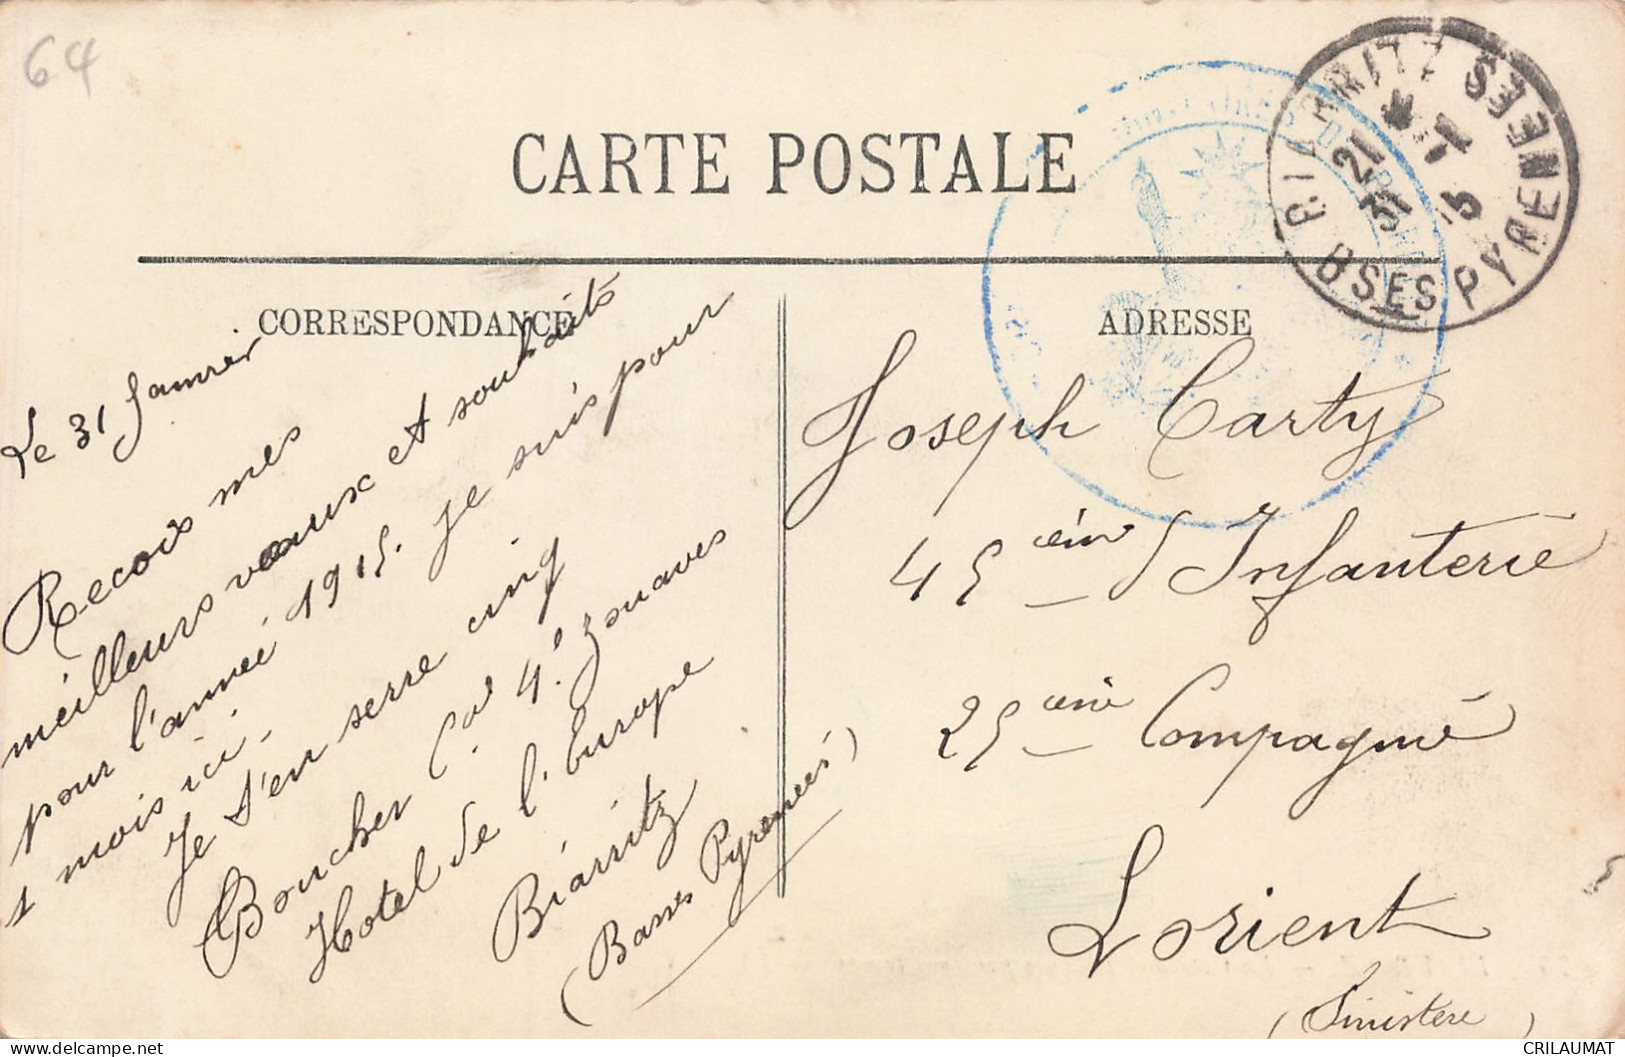 64
CARTE POSTALE
CORRESPONDANCE
ADRESSE
BIARRITZ BSES PYRENEES
21
31 - 1
15
Le 31 Janvier
Recois mes
meilleurs vœux et souhaits
pour l'année 1915. Je suis pour
1 mois ici.
Je t'en serre cinq
Boucher Cal 4e Zouaves
Hotel de l'Europe
Biarritz
(Basses Pyrénées)
Joseph Carty
45 eme Infanterie
25 eme Compagnie
Lorient
(Finistere)
DELCAMPE.NET
CRILAUMAT